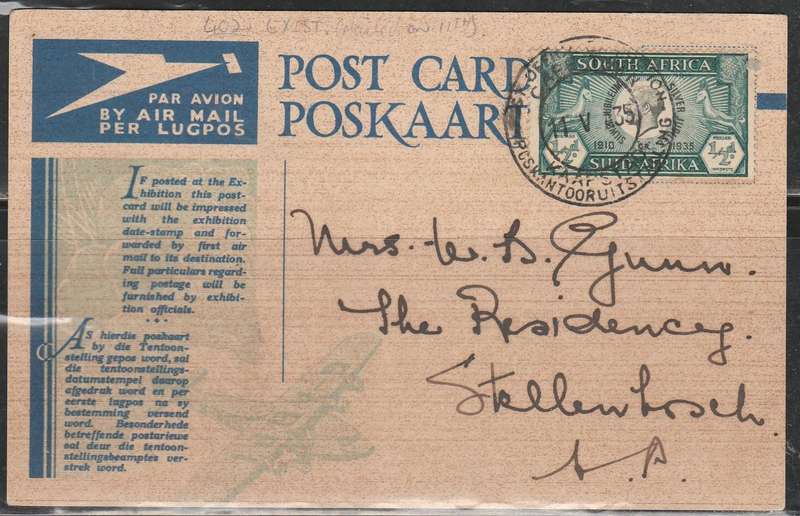 402 EXIST.
PAR AVION
BY AIR MAIL
PER LUGPOS
POST CARD
POSKAART
SOUTH AFRICA
SILVER
1910 1935
½d ½d
SUID AFRIKA
11 V 35
KAAPSTAD
IF posted at the Ex-
hibition this post-
card will be impressed
with the exhibition
date-stamp and for-
warded by first air
mail to its destination.
Full particulars regard-
ing postage will be
furnished by exhibi-
tion officials.
AS hierdie poskaart
by die Tentoon-
stelling gepos word, sal
die tentoonstellings-
datumstempel daarop
afgedruk word en per
eerste lugpos na sy
bestemming versend
word. Besonderhede
betreffende postariewe
sal deur die tentoon-
stellingsbeamptes ver-
strek word.
Mrs. W. B. Gunn.
The Residency
Stellenbosch.